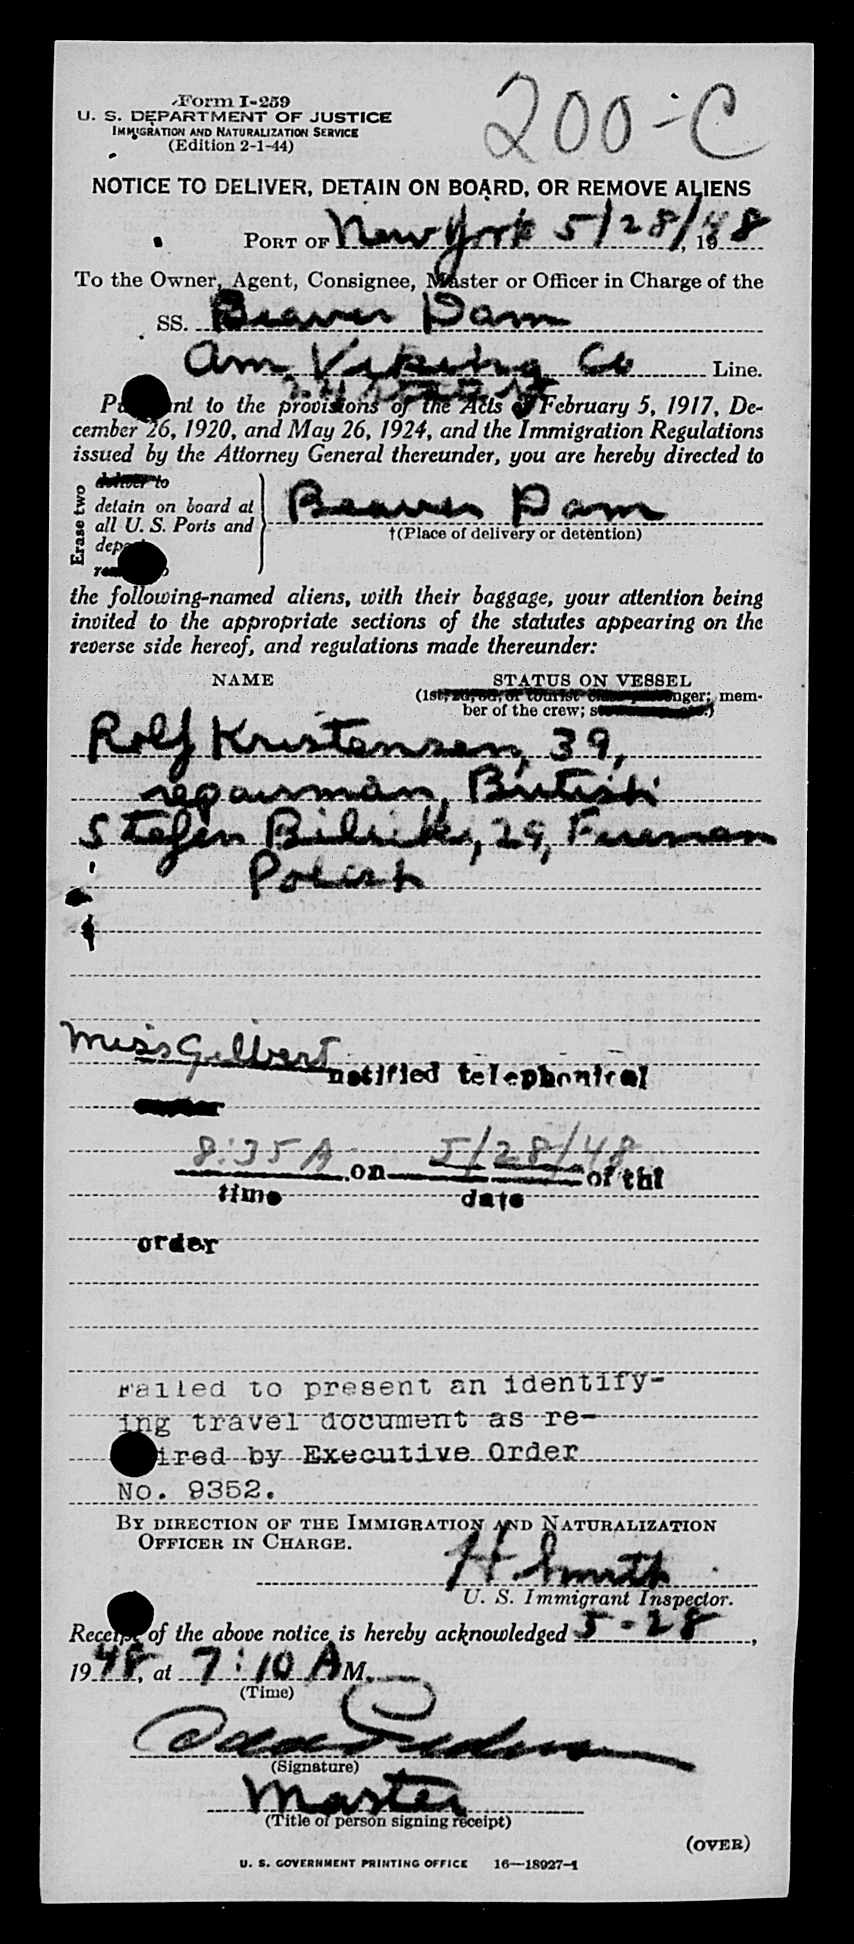 Form I-259
200-C
U. S. DEPARTMENT OF JUSTICE
IMMIGRATION AND NATURALIZATION SERVICE
(Edition 2-1-44)
NOTICE TO DELIVER, DETAIN ON BOARD, OR REMOVE ALIENS
PORT OF New York 5/28/, 1948
To the Owner, Agent, Consignee, Master or Officer in Charge of the
SS. Beaver Dam
Am Viking Co Line.
24
Pursuant to the provisions of the Acts of February 5, 1917, De-
cember 26, 1920, and May 26, 1924, and the Immigration Regulations
issued by the Attorney General thereunder, you are hereby directed to
Erase two
deliver to
detain on board at
all U. S. Ports and
Beaver Dam
†(Place of delivery or detention)
the following-named aliens, with their baggage, your attention being
invited to the appropriate sections of the statutes appearing on the
reverse side hereof, and regulations made thereunder:
NAME STATUS ON VESSEL
(1st, 2d, 3d, or tourist class passenger; mem-
ber of the crew;
Rolf Kristensen, 39,
repairman, British
Stefen 29, Fireman
Polish
Miss Gilbert
notified telephonical
8:35 A on 5/28/48 of the
time date
order
Failed to present an identify-
ing travel document as re-
ired by Executive Order
No. 9352.
BY DIRECTION OF THE IMMIGRATION AND NATURALIZATION
OFFICER IN CHARGE.
H Smith
U. S. Immigrant Inspector.
Receipt of the above notice is hereby acknowledged 5-28,
1948, at 7:10 A M.
(Time)
(Signature)
Master
(Title of person signing receipt)
(OVER)
U. S. GOVERNMENT PRINTING OFFICE 16—18927-1